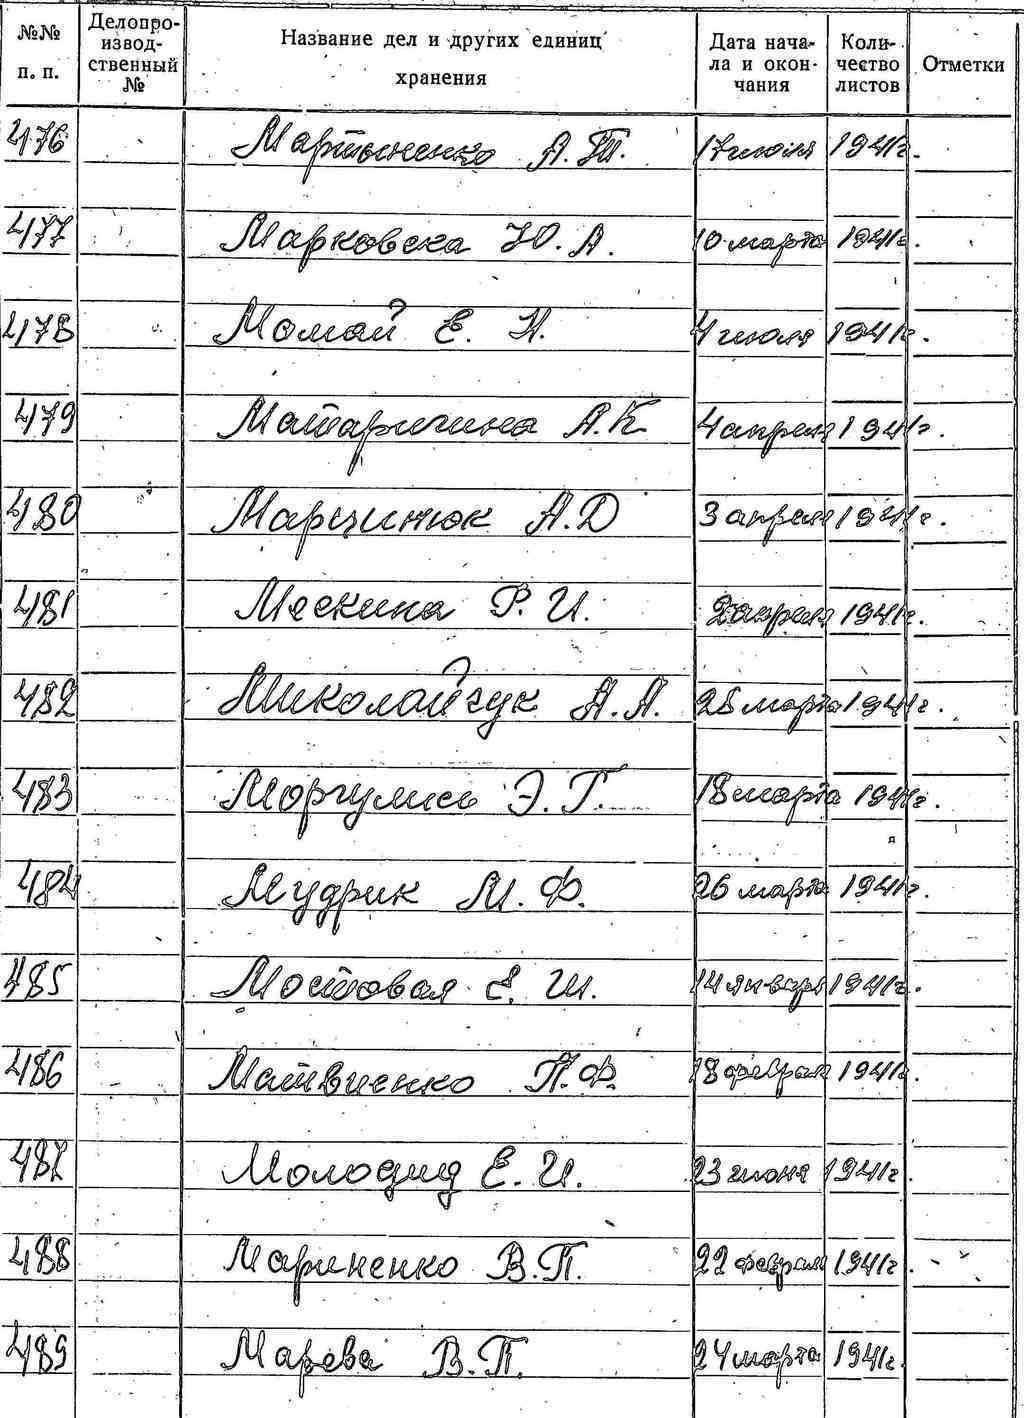 №№ п. п. Делопроизводственный № Название дел и других единиц хранения Дата начала и окончания Количество листов Отметки
476 Мартыненко А.Т. 17 июля 1941г.
477 Марковска Ю.А. 10 марта 1941г.
478 Момай Е. Н. 4 июля 1941г.
479 Матаричина А.К. 4 апреля 1941г.
480 Марцинюк А.Д 3 апреля 1941г.
481 Мескина Р.И. 2 апреля 1941г.
482 Миколайчук А.А. 28 марта 1941г.
483 Моргулись Э.Г. 18 марта 1941г.
484 Мудрик М.Ф. 26 марта 1941г.
485 Мостовая Е. Ш. 14 января 1941г.
486 Матвиенко П.Ф. 18 февраля 1941г.
487 Молодид Е.И. 23 июня 1941г.
488 Мариненко В.П. 22 февраля 1941г.
489 Марева В.П. 24 марта 1941г.